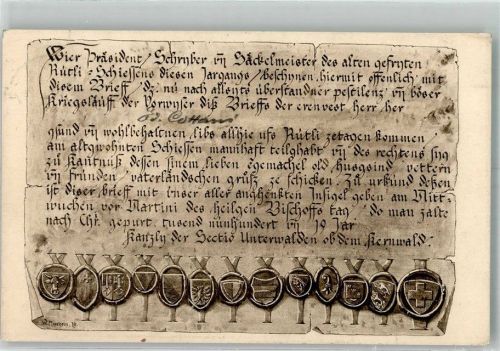 Wier Präsident / Schryber vn̄ Säckelmeister des alten gefryten
Rütli-Schiessens diesen Jargangs / beschynen hiermit offenlich mit
disem Brieff / dz nu nach allseits überstandner pestilenz vn̄ böser
Kriegsläuff der Vorwyser diß Brieffs der erenvest herr her
gsund vn̄ wohlbehaltnen libs allhie ufs Rütli zetagen kommen
am altgwohnten Schiessen mannhaft teilghabt vn̄ des rechtens syg
zu kantnuß dessen sinem lieben egemachel old husgsind vettern
vn̄ fründen / vaterländschen gruß ze schicken / Zu urkund deßen
ist diser brieff mit vnser aller anghenkten Insigel geben am Mitt-
wuchen vor Martini des heilgen Bischoffs tag / do man zalte
nach Chr. gepurt tusend nünhundert vn̄ 19 Jar
Kanzly der Sectio Unterwalden ob dem Kernwald.